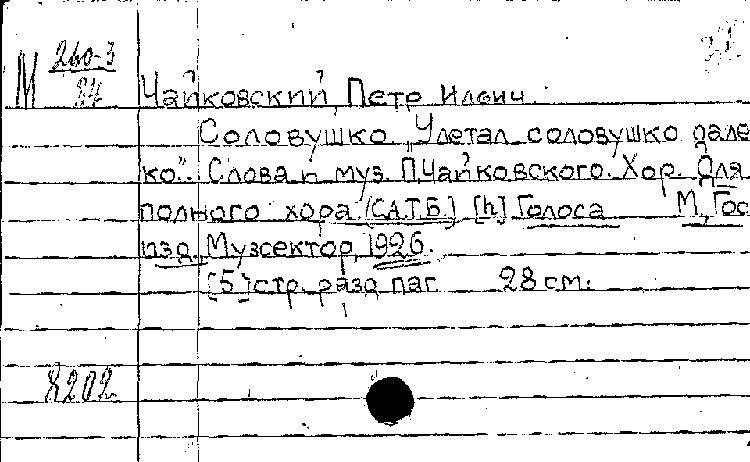 М 260-3
84
Чайковский, Петр Ильич.
Соловушко „Улетал соловушко дале
ко". Слова и муз. П.Чайковского. Хор. Для
полного хора (С.А.Т.Б.) [h] Голоса М, Гос
изд. Музсектор, 1926.
[5] стр. разд. паг. 28 см.
8202